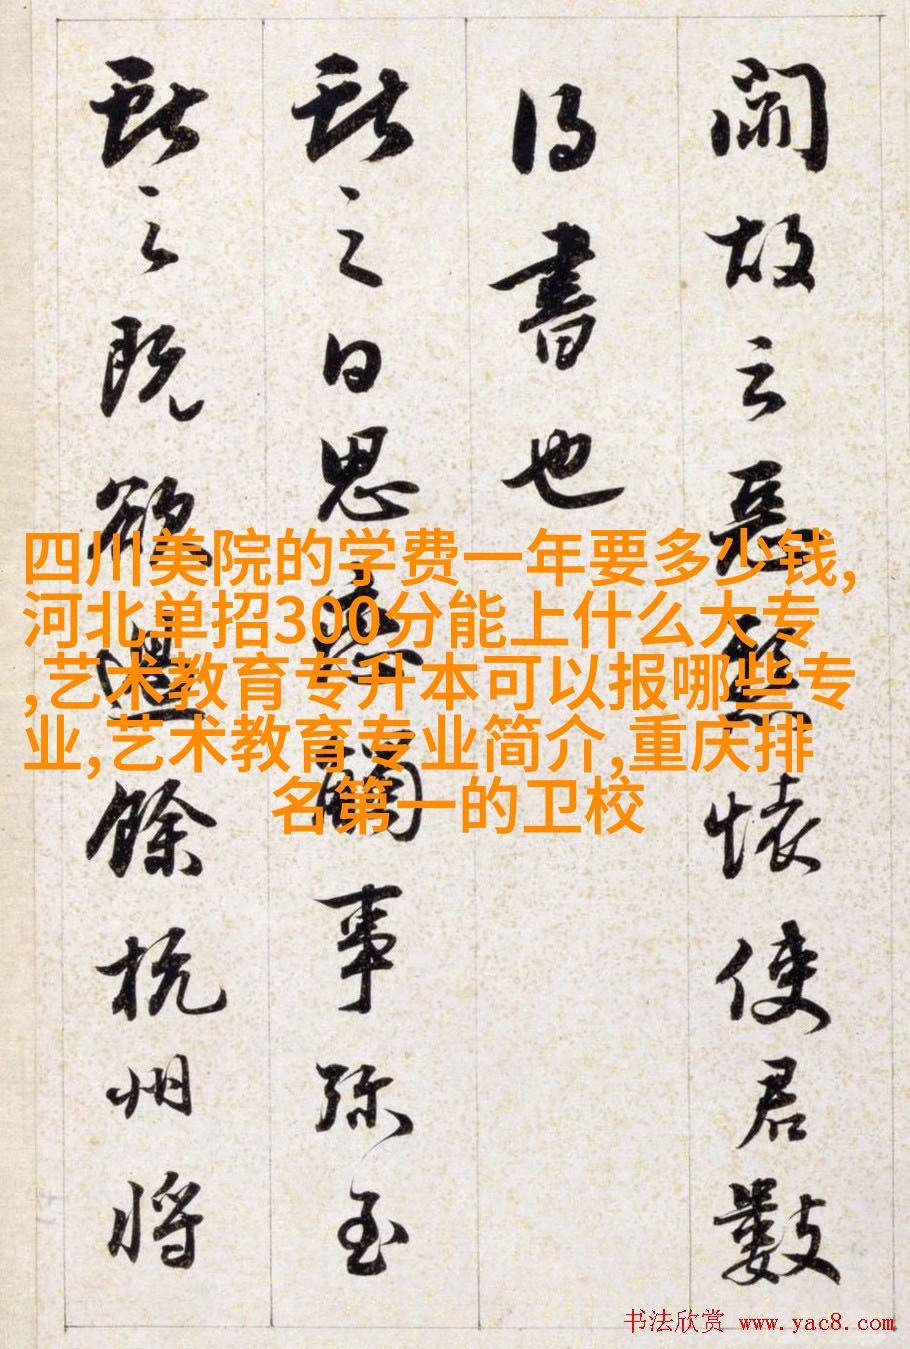 故云惡懸懷使君數
得書也
獻之日思戀觸事弥至
獻之既欲過餘杭州將
四川美院的学费一年要多少钱,
河北单招300分能上什么大专
,艺术教育专升本可以报哪些专
业,艺术教育专业简介,重庆排
名第一的卫校
书法欣赏 www.yac8.com